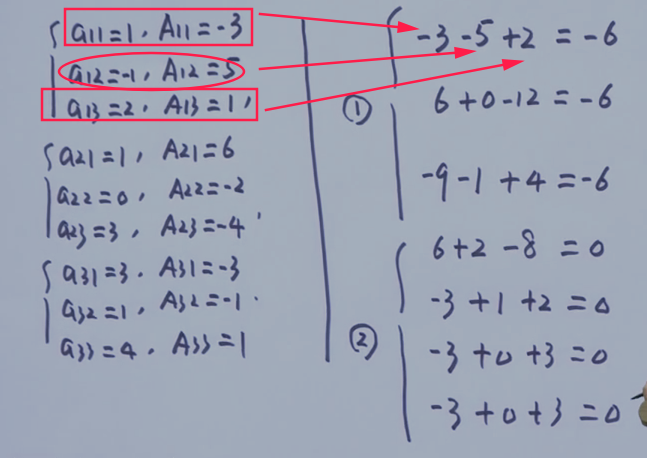 a11=1, A11=-3
a12=-1, A12=5
a13=2, A13=1,
a21=1, A21=6
a22=0, A22=-2
a23=3, A23=-4
a31=3, A31=-3
a32=1, A32=-1
a33=4, A33=1
①
-3-5+2=-6
6+0-12=-6
-9-1+4=-6
②
6+2-8=0
-3+1+2=0
-3+0+3=0
-3+0+3=0